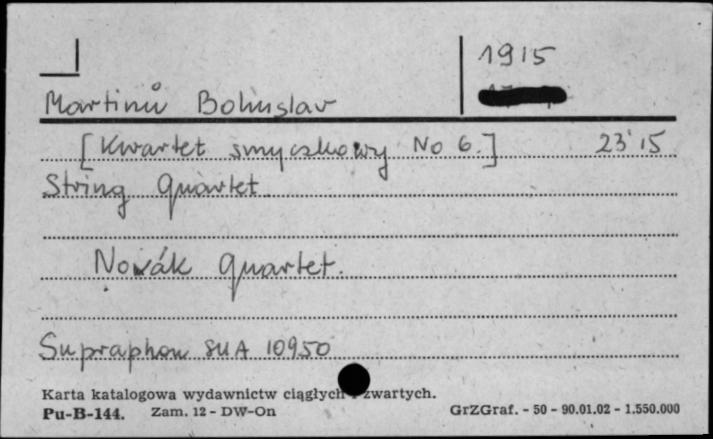 1915
Martinů Bohuslav
[Kwartet smyczkowy No 6.] 23'15
String Quartet
Novák Quartet.
Supraphon SUA 10950
Karta katalogowa wydawnictw ciągłych i zwartych.
Pu-B-144. Zam. 12 - DW-On GrZGraf. - 50 - 90.01.02 - 1.550.000